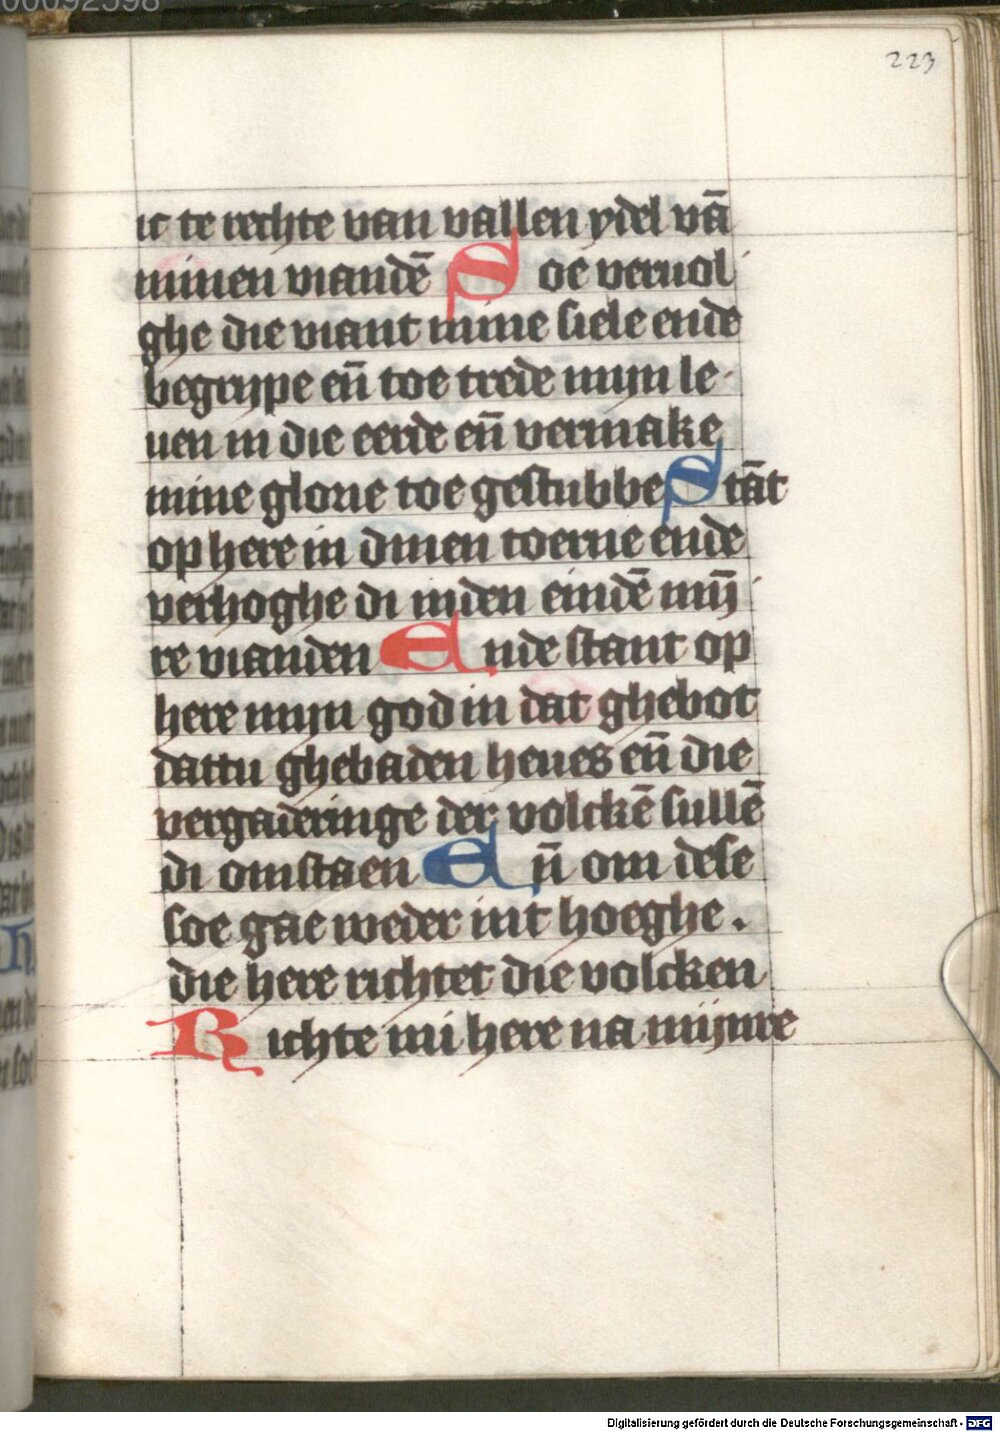 00092598
223
ic te rechte van vallen ydel vā
minen viandē Soe veruol
ghe die viant mine siele ende
begrype en̄ toe trede myn le-
uen in die eerde en̄ vermake
mine glorie toe gestubbe Stāt
op here in dinen toerne ende
verhoghe di inden eindē mij̄
re vianden Ende stant op
here myn god in dat ghebot
dattu ghebaden heues en̄ die
vergaderinge der volckē sullē
di omstaen En̄ om dese
soe gae weder int hoeghe.
die here richtet die volcken
Richte mi here na mijnre
Digitalisierung gefördert durch die Deutsche Forschungsgemeinschaft - DFG